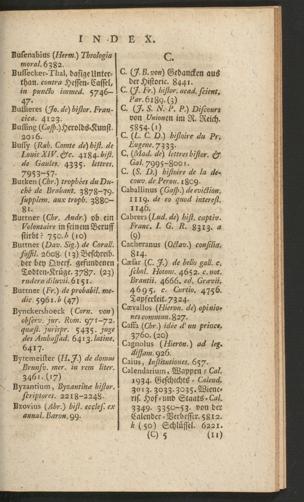 INDEX.
Busenabius (Herm.) Theologia
moral. 6382.
Bussecker-Thal, dasige Unter-
than. contra Hessen-Cassel,
in puncto immed. 5746-
47.
Bussieres (Jo. de) histor. Fran-
cica. 4123.
Bussing (Casp.) Herolds-Kunst.
2016.
Bussy (Rab. Comte de) hist. de
Louis XIV. &c. 4184. hist.
de Gaules. 4335. lettres.
7953-57.
Butken (Chr.) trophées du Du-
ché de Brabant. 3878-79.
supplem. aux troph. 3880-
81.
Buttner (Chr. Andr.) ob ein
Volontaire in seinem Beruff
stirbt? 750. b (10)
Buttner (Dav. Sig.) de Corall.
fossil. 2608. (13) Beschreib.
der bey Overf. gefundenen
Todten-Krüge. 3787. (23)
rudera diluvii. 6151.
Buttner (Fr.) de probabil. me-
dic. 5961. b (47)
Bynckershoeck (Corn. von)
observ. jur. Rom. 971-72.
quæst. juripr. 5435. juge
des Ambassad. 6413. latine.
6417.
Bytemeister (H. J.) de domus
Brunsv. mer. in rem liter.
3461. (17)
Byzantium, Byzantinæ histor.
scriptores. 2218-2248.
Bzovius (Abr.) hist. eccles. ex
annal. Baron. 99.
C.
C. (J. B. von) Gedancken aus
der Historie. 8441.
C. (J. Fr.) histor. acad. scient.
Par. 6189. (3)
C. (J. S. N. P. P.) Discours
von Unionen im R. Reich.
5854. (1)
C. (L. C. D.) histoire du Pr.
Eugene. 7333.
C. (Mad. de) lettres histor. &
Gal. 7995-8001.
C. (S. D.) histoire de la de-
couv. de Perou. 1809.
Caballinus (Gasp.) de eviction.
1119. de eo quod interest.
1146.
Cabrera (Lud. de) hist. captiv.
Franc. I. G. R. 8313. a
(9)
Cacheranus (Octav.) consilia.
814.
Cæsar (C. J.) de bello gall. c.
schol. Hotom. 4652. c. not.
Brantii. 4666. ed. Grævii.
4695. c. Curtio. 4756.
Tapferkeit. 7324.
Cævallos (Hieron. de) opinio-
nes commun. 827.
Caffa (Chr.) idée d'un prince.
3760. (20)
Cagnolus (Hieron.) ad leg.
digestam. 926.
Caius, Institutiones. 657.
Calendarium, Wappen-Cal.
1934. Geschichts-Calend.
3013. 3033. 3035. Wiene-
ris. Hof- und Staats-Cal.
3349. 3350-53. von der
Calender-Verbesser. 5812.
k (50) Schlüssel. 6221.
(C) 5
(11)